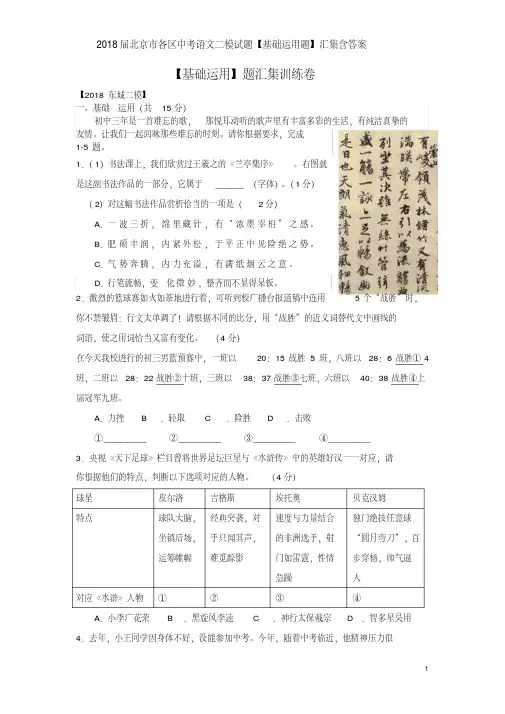 2018届北京市各区中考语文二模试题【基础运用题】汇集含答案
【基础运用】题汇集训练卷
【2018 东城二模】
一、基础 运用（共 15 分）
初中三年是一首难忘的歌， 那悦耳动听的歌声里有丰富多彩的生活，有纯洁真挚的
友情。让我们一起回味那些难忘的时刻。请你根据要求，完成
1-5 题。
1.（1）书法课上，我们欣赏过王羲之的《兰亭集序》 。右图就
是这副书法作品的一部分，它属于 ______ （字体）。（1 分）
（2）对这幅书法作品赏析恰当的一项是（ 2分）
A. 一波三折，绵里藏针，有“浓墨宰相”之感。
B. 肥硕丰润，内紧外松，于平正中见险绝之势。
C. 气势奔腾，内力充溢，有满纸烟云之意。
D. 行笔流畅，变 化微妙，整齐而不显得呆板。
百
峻领茂林脩竹又有清流激
湍暎带左右引以为流觞曲水
列坐其次虽无丝竹管弦之
盛一觞一咏亦足以畅叙幽情
是日也天朗气清惠风和畅
2．激烈的篮球赛如火如荼地进行着，可听到校广播台报道稿中连用 5 个“战胜”时，
你不禁皱眉：行文太单调了！请根据不同的比分，用“战胜”的近义词替代文中画线的
词语，使之用词恰当又富有变化。 （4 分）
在今天我校进行的初三男篮预赛中，一班以 20：15 战胜 5 班，八班以 28：6 战胜① 4
班，二班以 28：22 战胜②十班，三班以 38：37 战胜③七班，六班以 40：38 战胜④上
届冠军九班。
A．力挫 B ．轻取 C ．险胜 D ．击败
①_________ ②_________ ③_________ ④_________
3．央视《天下足球》栏目曾将世界足坛巨星与《水浒传》中的英雄好汉一一对应，请
你根据他们的特点，判断以下选项对应的人物。 （4 分）
球星 皮尔洛 吉格斯 埃托奥 贝克汉姆
特点 球队大脑，坐镇后场，运筹帷幄 经典突袭，对手只闻其声，难觅踪影 速度与力量结合的非洲选手，射门如雷霆，性情急躁 独门绝技任意球“圆月弯刀”，百步穿杨，帅气逼人
对应《水浒》人物 ① ② ③ ④
A．小李广花荣 B ．黑旋风李逵 C ．神行太保戴宗 D ．智多星吴用
4．去年，小王同学因身体不好，没能参加中考。今年，随着中考临近，他精神压力很
1